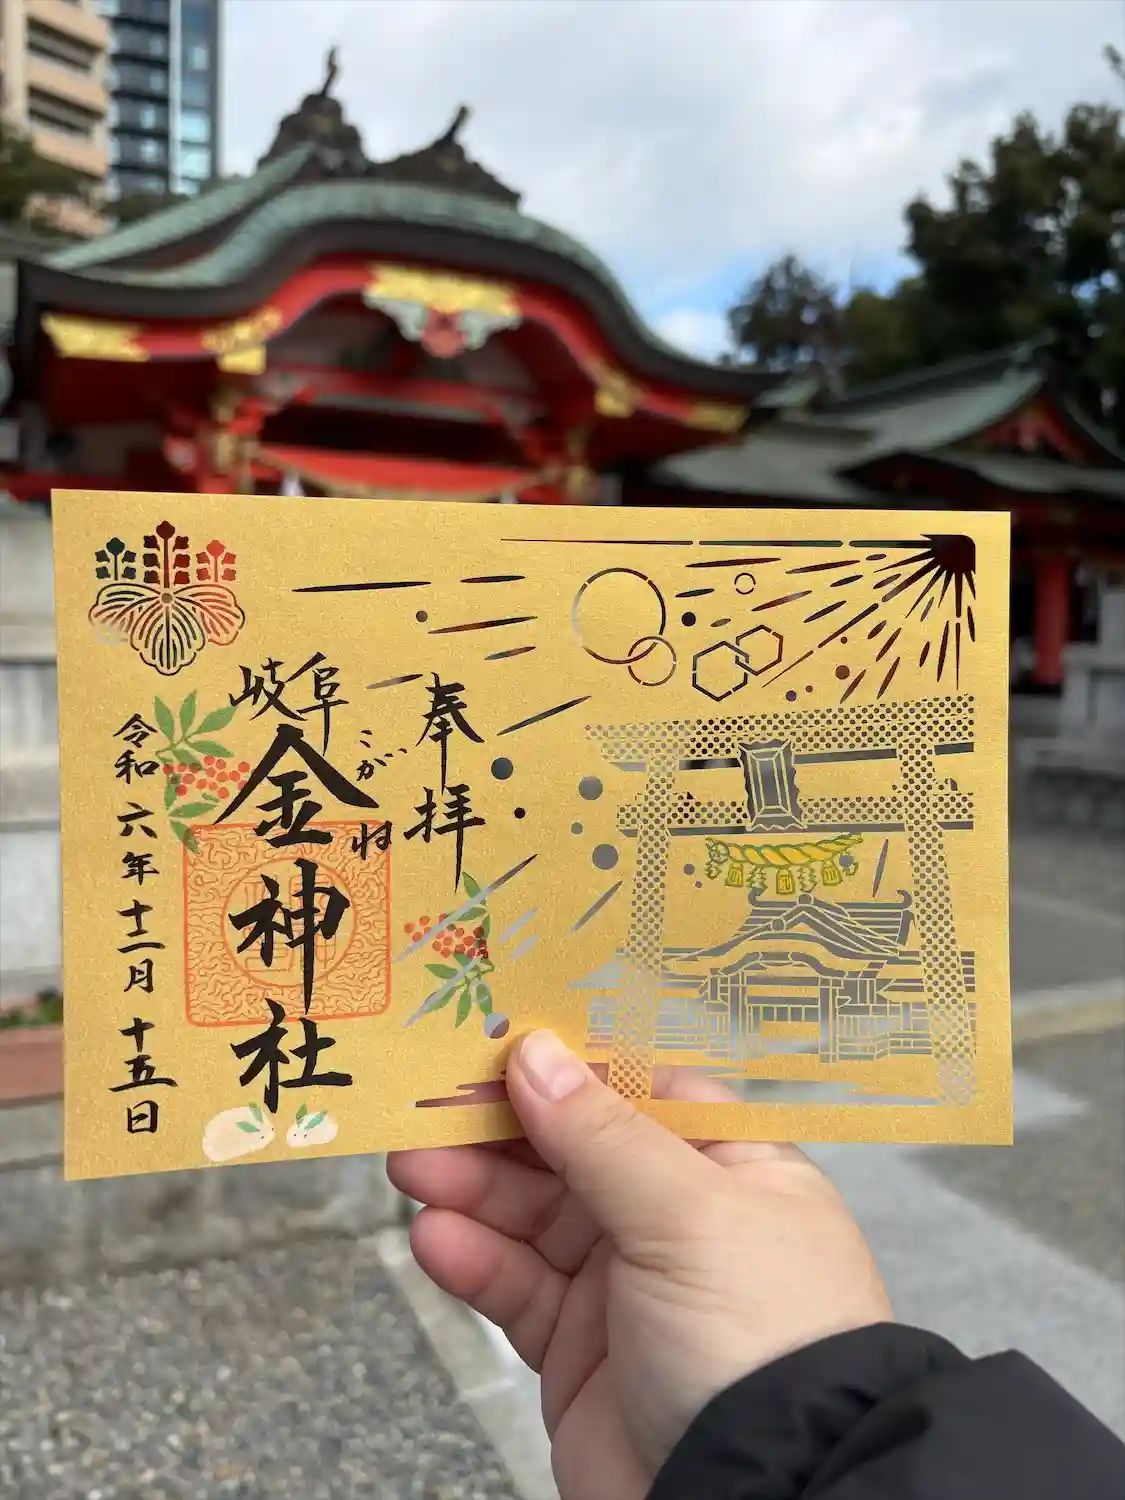 奉拝
岐阜
金神社
こがね
令和六年十二月十五日